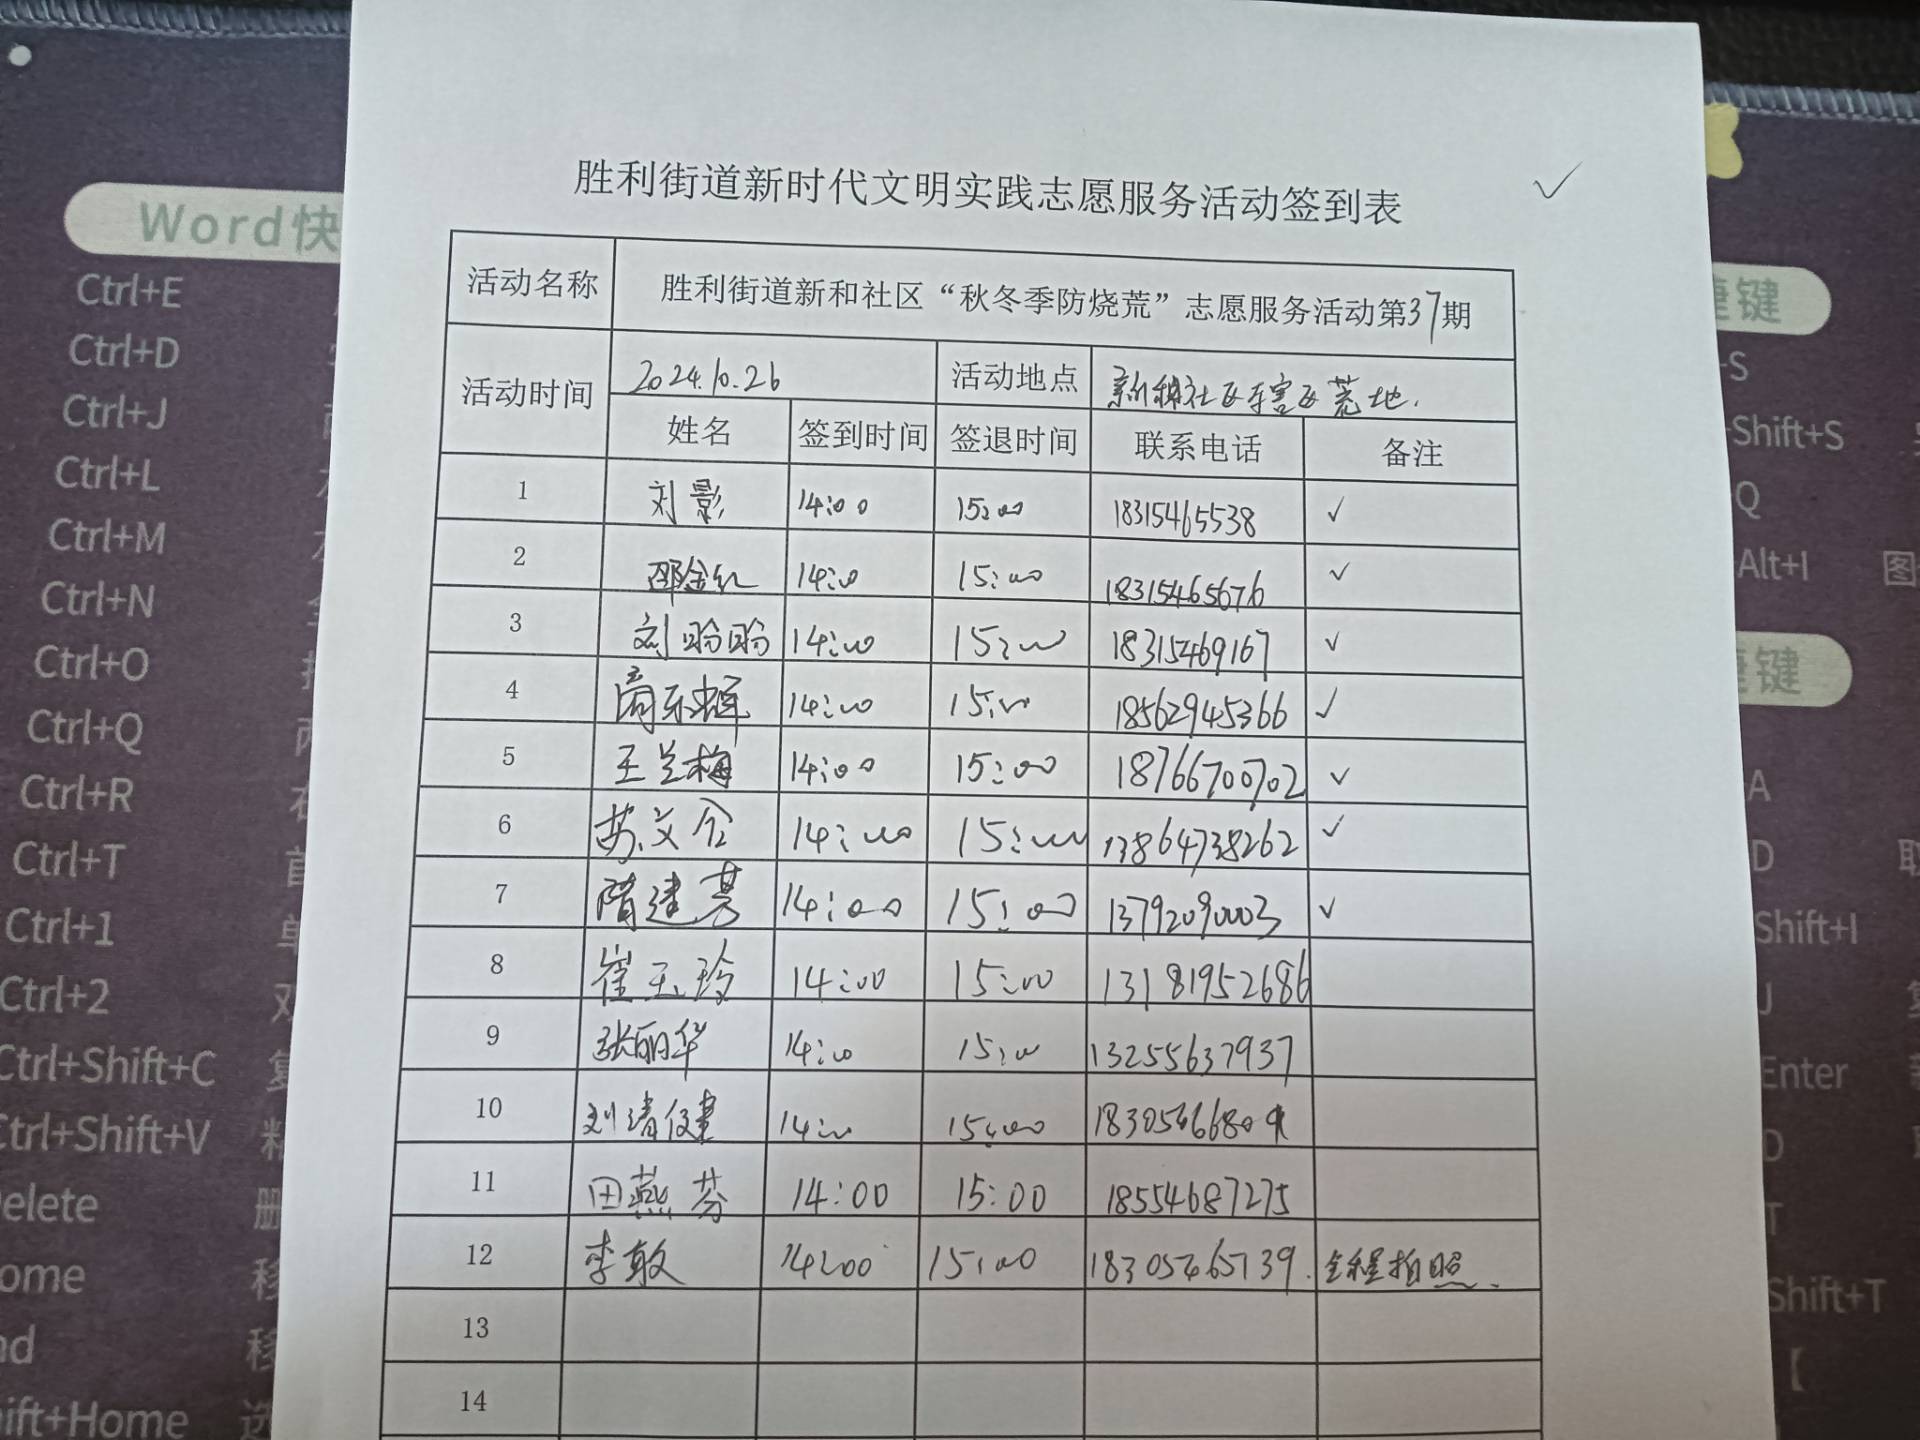 胜利街道新时代文明实践志愿服务活动签到表 ✓
活动名称 胜利街道新和社区“秋冬季防烧荒”志愿服务活动第37期
活动时间 2024.10.26 活动地点 新和社区辖区荒地.
姓名 签到时间 签退时间 联系电话 备注
1 刘影 14:00 15:00 18315465538 ✓
2 邵金红 14:00 15:00 18315465676 ✓
3 刘盼盼 14:00 15:00 18315469167 ✓
4 14:00 15:00 18562945366 ✓
5 王兰梅 14:00 15:00 18766700702 ✓
6 苏文合 14:00 15:00 13864738262 ✓
7 隋建 14:00 15:00 13792090003 ✓
8 崔玉珍 14:00 15:00 13181952686
9 张丽华 14:00 15:00 13255637937
10 刘清健 14:00 15:00
11 田燕芬 14:00 15:00 18554687275
12 李敢 14:00 15:00 18305465739. 全程拍照.
13
14
Word快
Ctrl+E
Ctrl+D
Ctrl+J
Ctrl+L
Ctrl+M
Ctrl+N
Ctrl+O
Ctrl+Q
Ctrl+R
Ctrl+T
Ctrl+1
Ctrl+2
Ctrl+Shift+C 复
Ctrl+Shift+V 粘
elete 删
ome 移
nd 移
ift+Home 选
捷键
-S
-Shift+S
Q
Alt+I 图
捷键
A
D 取
Shift+I
J
Enter
D
T
Shift+T
【